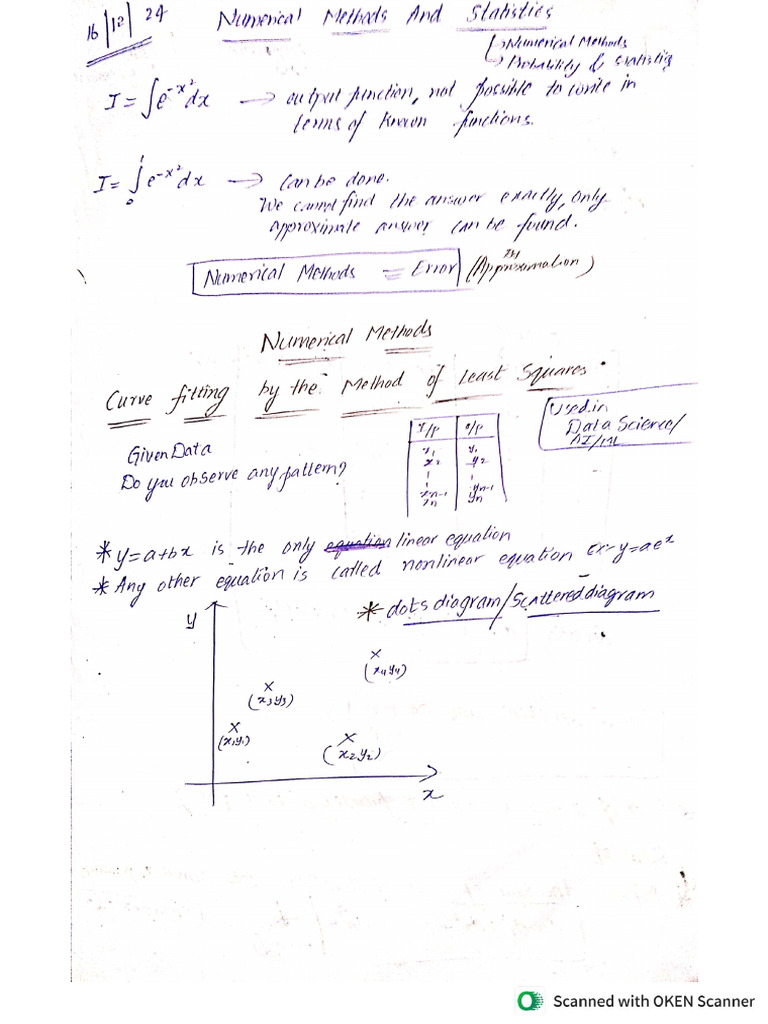 16/12/24 Numerical Methods And Statistics
↳Numerical Methods
↳Probability & Statistics
I = ∫e^{-x²}dx → output function, not possible to write in
terms of known functions.
I = ∫₀¹ e^{-x²}dx → Can be done.
We cannot find the answer exactly, only
approximate answer can be found.
Numerical Methods = Error (Approximation)
Numerical Methods
Curve fitting by the Method of Least Squares.
Used in
Data Science/
AI/ML
Given Data
Do you observe any pattern?
I/P O/P
x₁ y₁
x₂ y₂
xn-1 yn-1
xn yn
* y=a+bx is the only linear equation
* Any other equation is called nonlinear equation ex- y=ae^x
* dots diagram/Scattered diagram
y
x
(x₄y₄)
x
(x₃y₃)
x
(x₁y₁)
x
(x₂y₂)
x
Scanned with OKEN Scanner